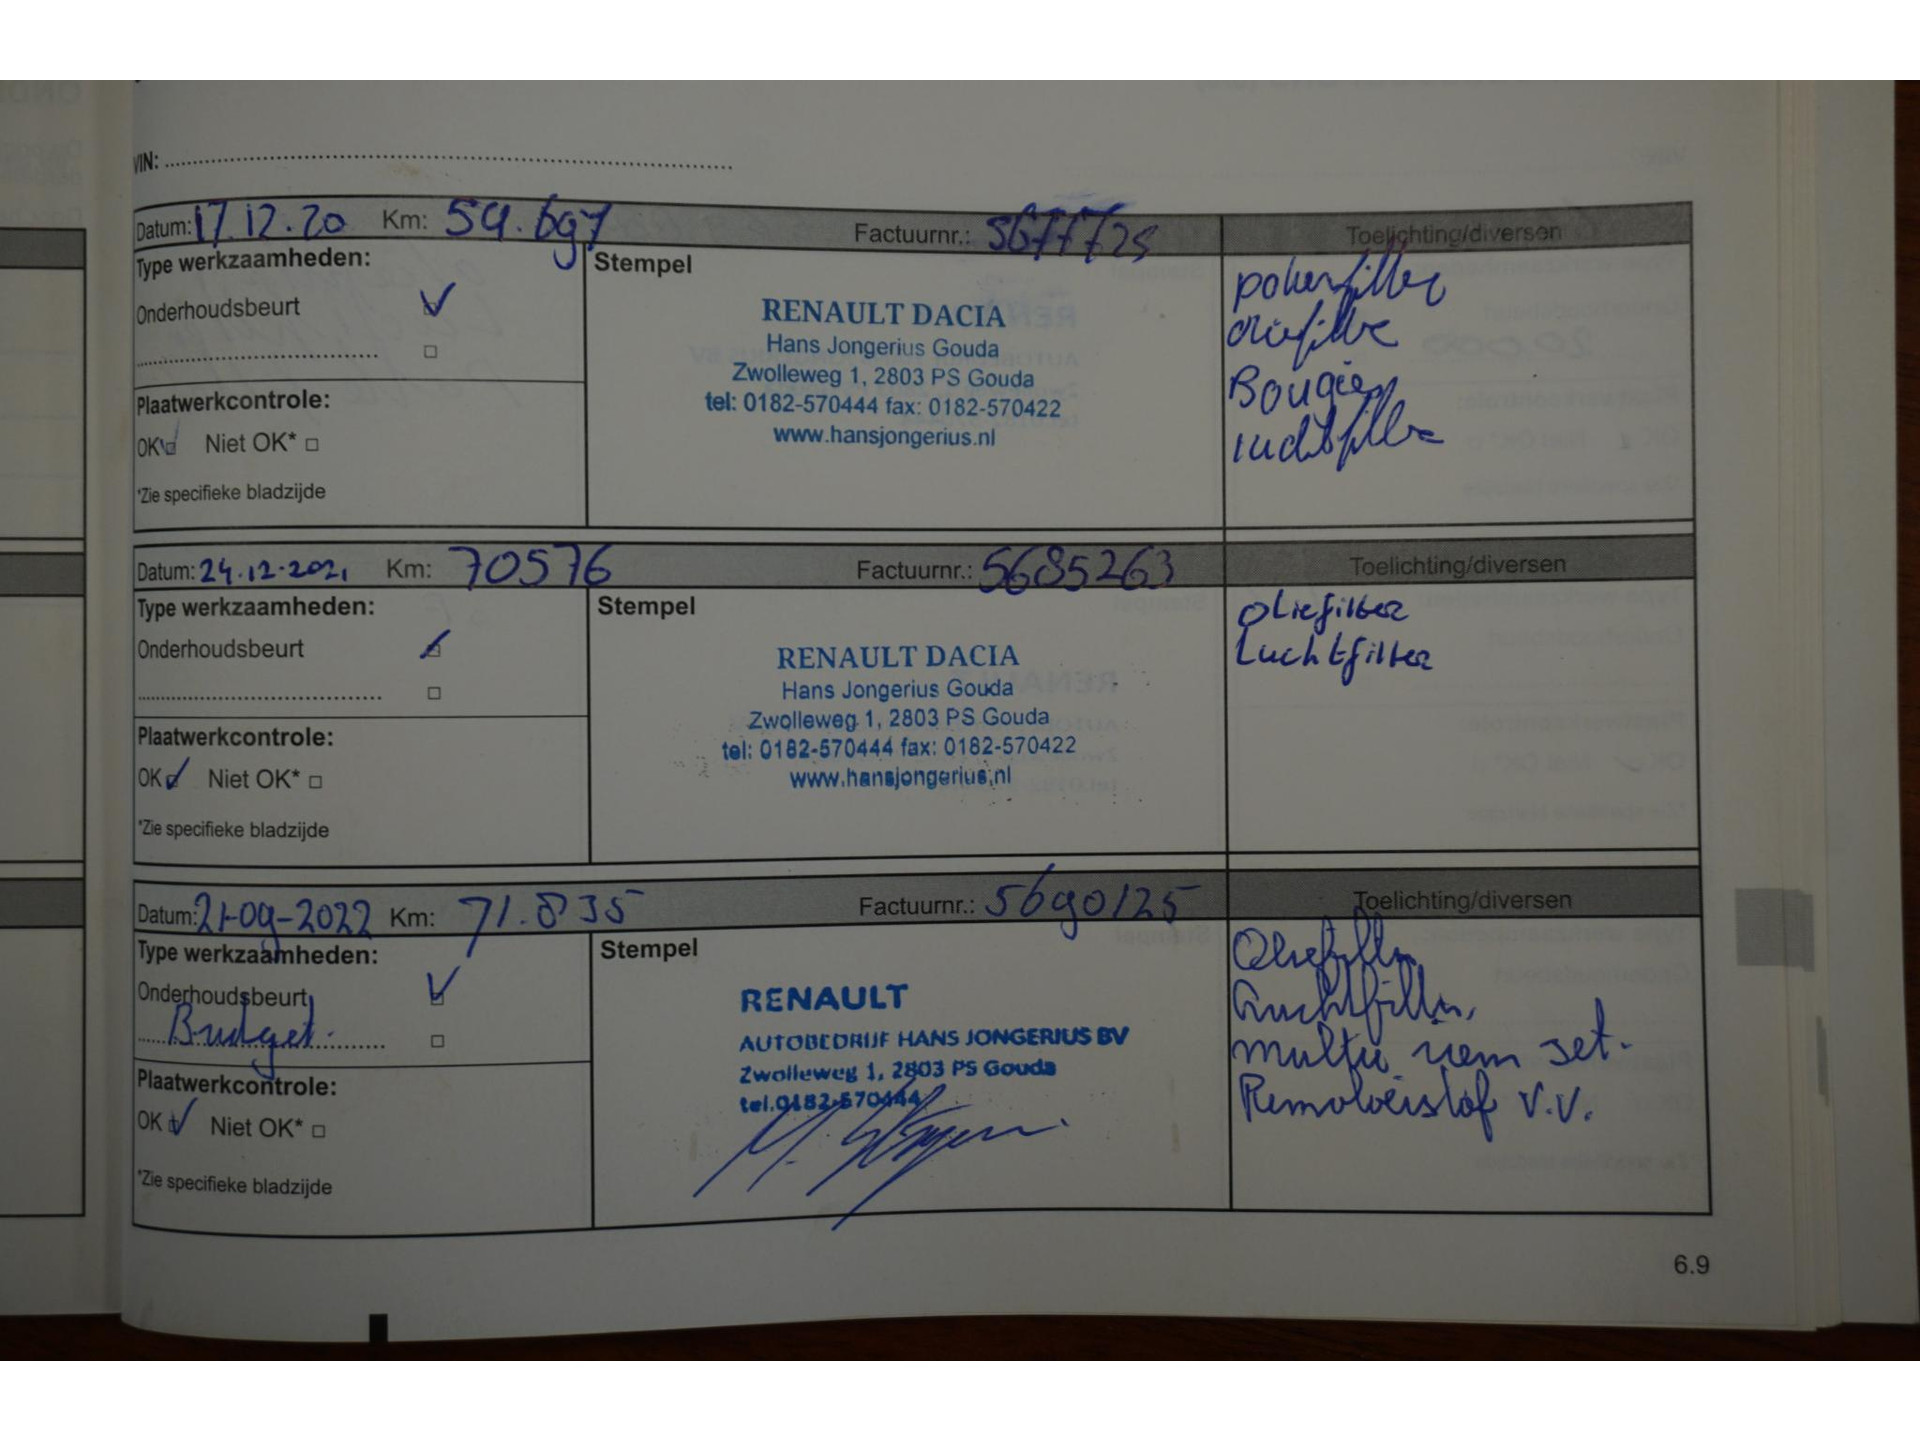 VIN:
Datum: 17.12.20 Km: 59.697 Factuurnr.: Toelichting/diversen
Type werkzaamheden:
Stempel
Onderhoudsbeurt
RENAULT DACIA
Hans Jongerius Gouda
Zwolleweg 1, 2803 PS Gouda
tel: 0182-570444 fax: 0182-570422
www.hansjongerius.nl
pollenfilter
oliefilter
Bougies
luchtfilter
Plaatwerkcontrole:
OK Niet OK*
*Zie specifieke bladzijde
Datum: 24.12.2021 Km: 70576 Factuurnr.: 5685263 Toelichting/diversen
Type werkzaamheden:
Stempel
Onderhoudsbeurt
RENAULT DACIA
Hans Jongerius Gouda
Zwolleweg 1, 2803 PS Gouda
tel: 0182-570444 fax: 0182-570422
www.hansjongerius.nl
oliefilter
Luchtfilter
Plaatwerkcontrole:
OK Niet OK*
*Zie specifieke bladzijde
Datum: 21-09-2022 Km: 71.835 Factuurnr.: 5690125 Toelichting/diversen
Type werkzaamheden:
Stempel
Onderhoudsbeurt
Budget.
RENAULT
AUTOBEDRIJF HANS JONGERIUS BV
Zwolleweg 1, 2803 PS Gouda
tel.0182-570444
Oliefilter
Luchtfilter,
multi riem set.
Remvloeistof v.v.
Plaatwerkcontrole:
OK Niet OK*
*Zie specifieke bladzijde
6.9